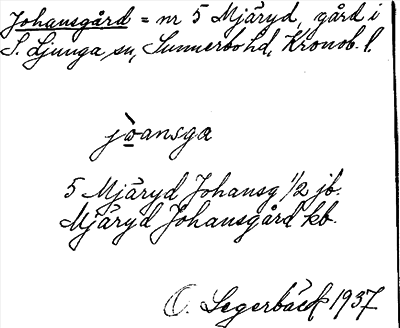 Johansgård = nr 5 Mjäryd, gård i
S. Ljunga sn, Sunnerbo hd, Kronob. l.
jòansga
5 Mjäryd Johansg 1/2 jb.
Mjäryd Johansgård kb.
O. Segerbäck 1937